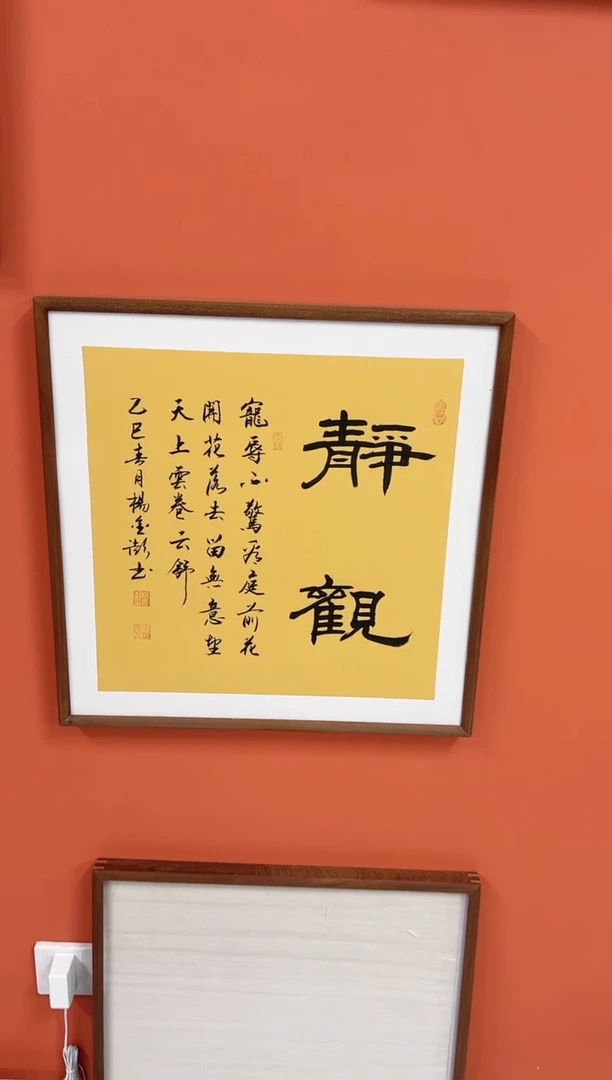 靜觀
寵辱不驚看庭前花
開花落去留無意望
天上雲卷云舒
乙巳春月楊金澎书